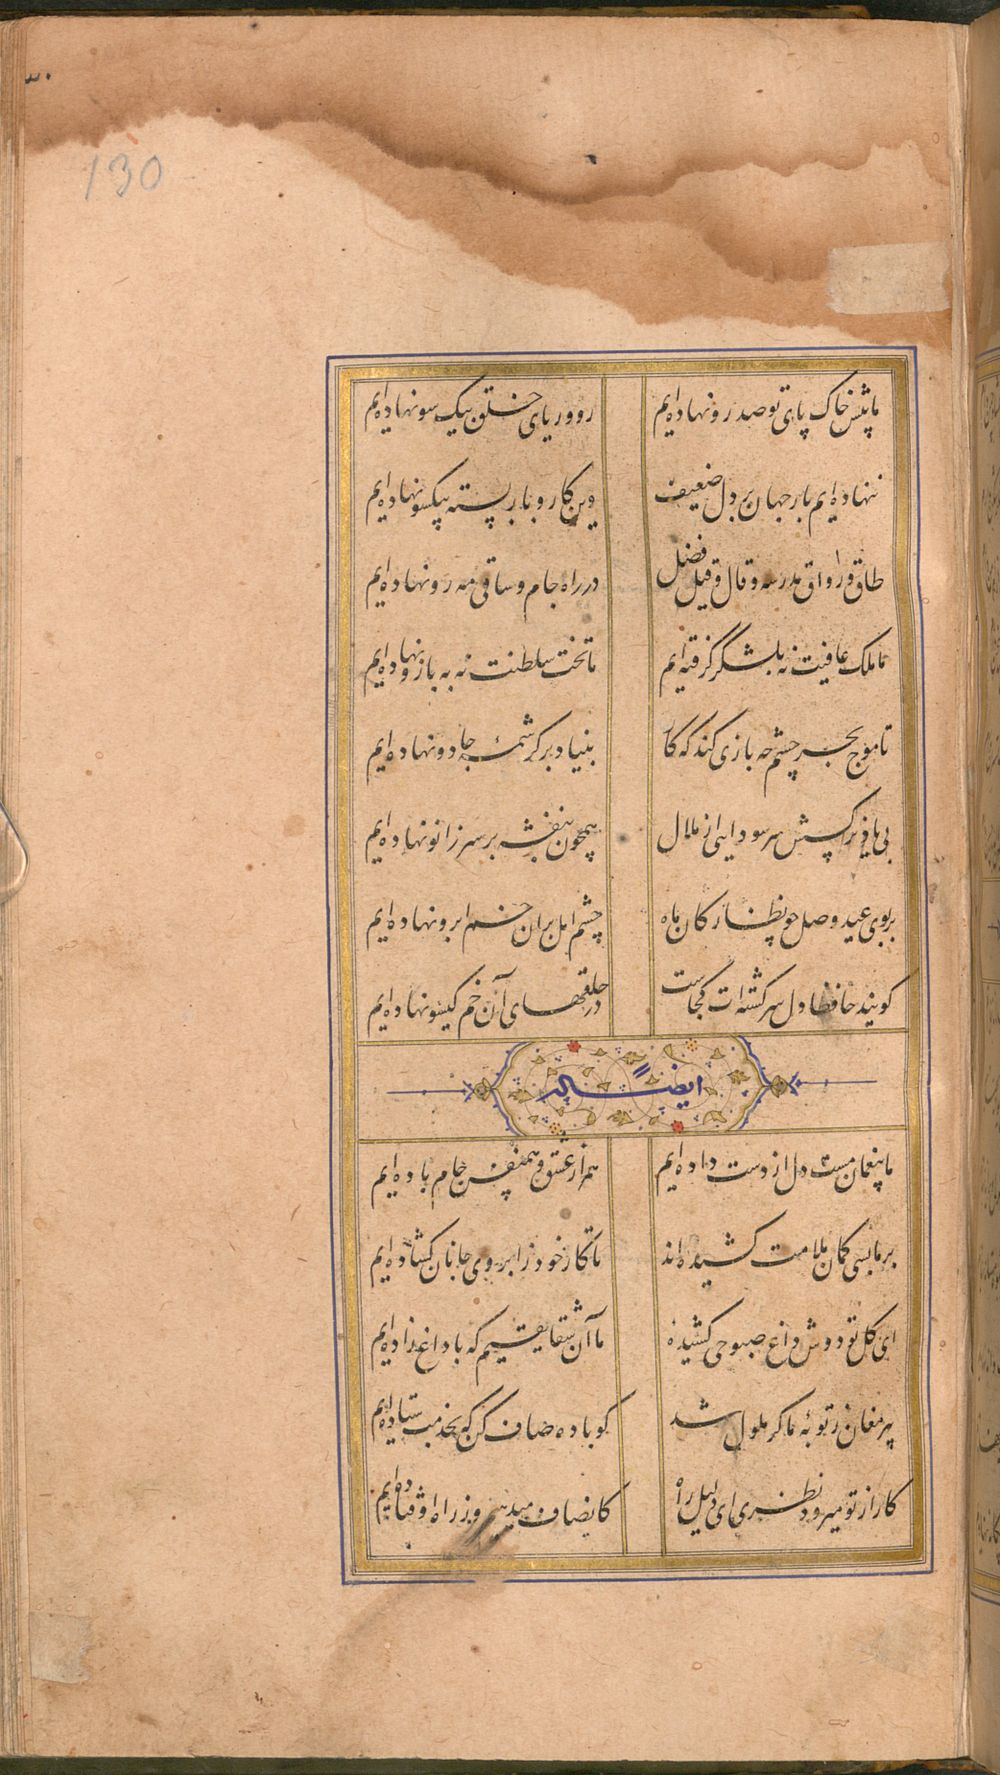 130
ما پیش خاک پای تو صد رو نهاده‌ایم
روی و ریای خلق بیک سو نهاده‌ایم
ننهاده‌ایم بار جهان بر دل ضعیف
وین کار و بار بسته بیکسو نهاده‌ایم
طاق و رواق مدرسه و قال و قیل فضل
در راه جام و ساقی مه رو نهاده‌ایم
ما ملک عافیت نه بلشگر گرفته‌ایم
ما تخت سلطنت نه به بازو نهاده‌ایم
تا موج بحر چشم چه بازی کند که کار
بنیاد بر کرشمهٔ جادو نهاده‌ایم
سر سودایی از ملال
همچون بنفشه بر سر زانو نهاده‌ایم
بر بوی عید وصل چو نظارگان ماه
چشم امل بران خم ابرو نهاده‌ایم
کویند حافظا دل سرکشته‌ات کجاست
در حلقهای آن خم کیسو نهاده‌ایم
ایضاً له
ما بیغمان مست دل از دست داده‌ایم
همراز عشق و همنفس جام باده‌ایم
بر ما بسی کمان ملامت کشیده‌اند
تا کار خود ز ابروی جانان کشاده‌ایم
ای کل تو دوش داغ صبوحی کشیده
ما آن شقایقیم که با داغ زاده‌ایم
پیر مغان ز توبهٔ ما کر ملول شد
کو باده صاف کن که بخدمت ستاده‌ایم
کار از تو میرود نظری ای دلیل راه
کانصاف میدهیم و ز راه اوفتاده‌ایم